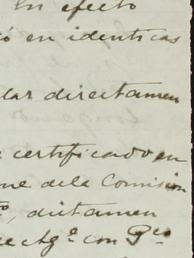 En efecto
ó en identicas
lar directamen
certificado en
ne dela Comision
to, dictamen
e Agº con Pcio